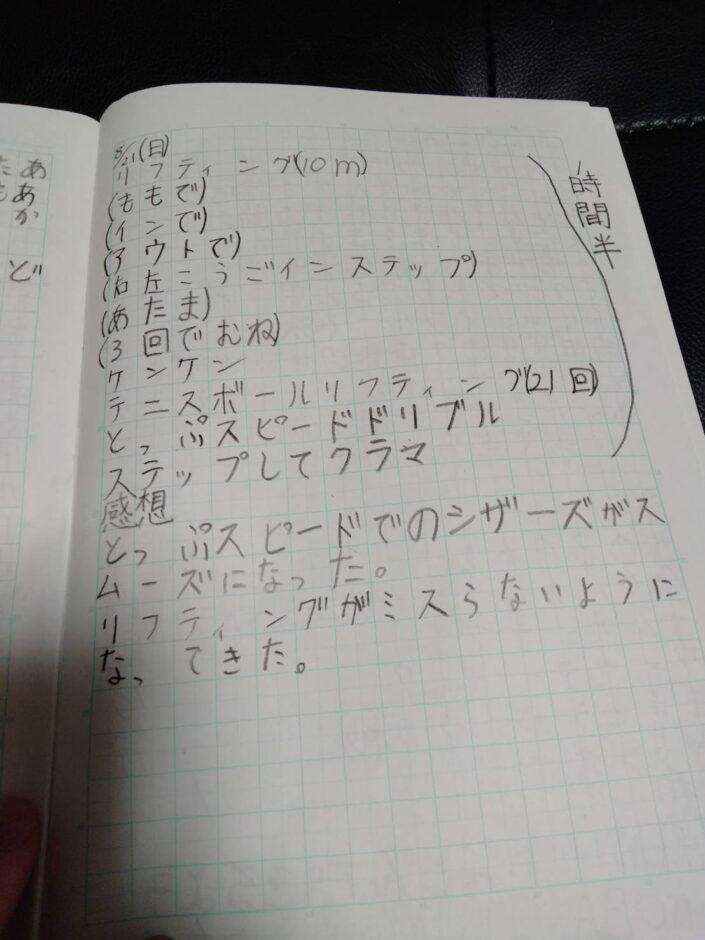 (日)
リフティング(10m)
(ももで)
(インで)
(アウトで)
(右左こうごインステップ)
(あたま)
(3回でむね)
ケンケン
テニスボールリフティング(21回)
とっぷスピードドリブル
ステップしてクラマ
時間半
感想
とっぷスピードでのシザーズがス
ムーズになった。
リフティングがミスらないように
なってきた。